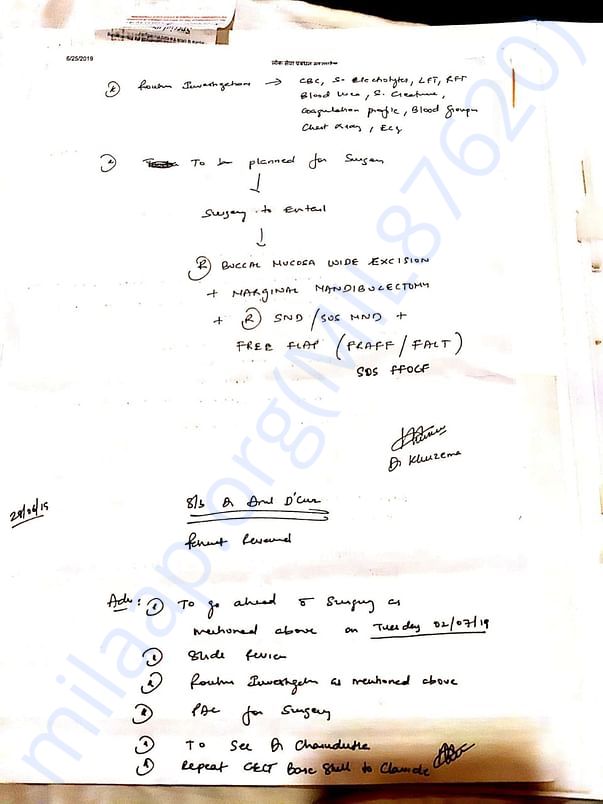 6/25/2019
Routine Investigations → CBC, S. Electrolytes, LFT, RFT
Blood Urea, S. Creatinine,
Coagulation profile, Blood Group
Chest Xray, ECG
To be planned for Surgery
↓
Surgery to Entail
↓
(R) BUCCAL MUCOSA WIDE EXCISION
+ MARGINAL MANDIBULECTOMY
+ (R) SND / SOS MND +
FREE FLAP (FRAFF / FALT)
SOS FFOCF
Dr Khuzema
28/06/19
S/b Dr Anil D'Cruz
Patient Reviewed
Adv: (1) To go ahead c Surgery as
mentioned above on Tuesday 02/07/19
Slide Review
Routine Investigation as mentioned above
PAC for Surgery
To See Dr
Repeat CECT Base Skull to Clavicle
milaap.org(MIL87620)